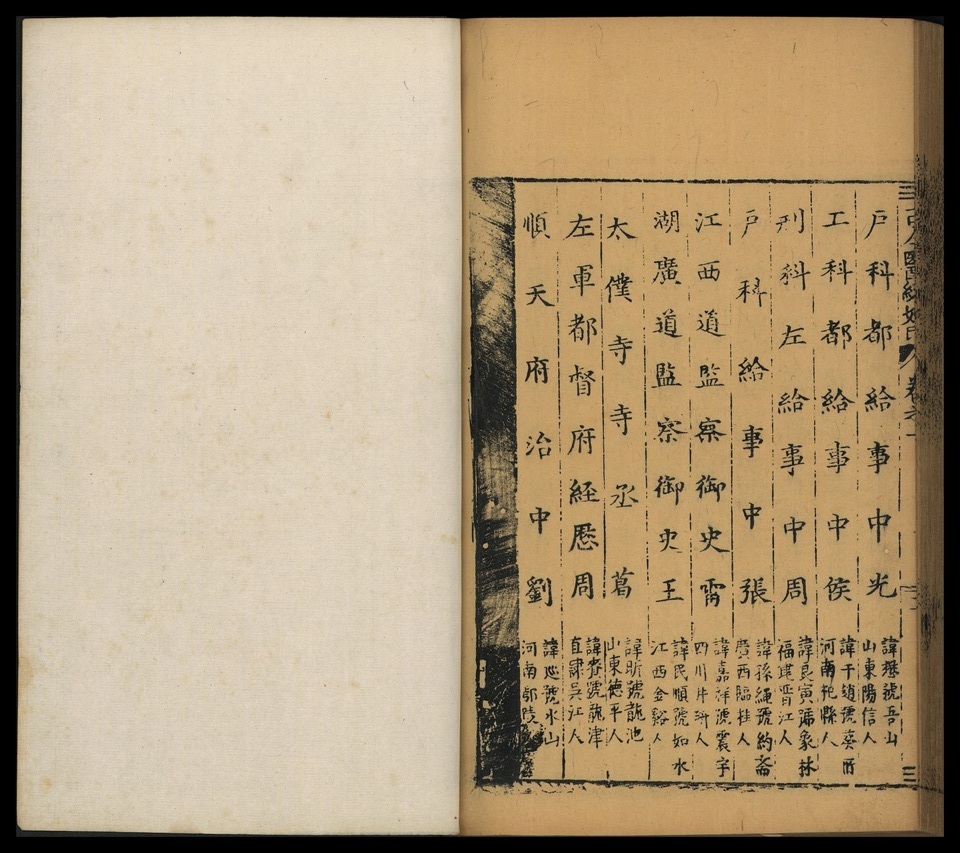 古今醫統姓氏 卷之一
戶科都給事中光 諱懋號吾山
山東陽信人
工科都給事中侯 諱于趙號葵所
河南杞縣人
刑科左給事中周 諱良寅號象林
福建晋江人
戶科給事中張 諱孫繩號約齋
廣西臨桂人
江西道監察御史雷 諱嘉祥號震宇
四川井研人
湖廣道監察御史王 諱民順號如水
江西金谿人
太僕寺寺丞葛 諱昕號龍池
山東德平人
左軍都督府經歷周 諱 號龍津
直隸吳江人
順天府治中劉 諱 號水山
河南鄢陵